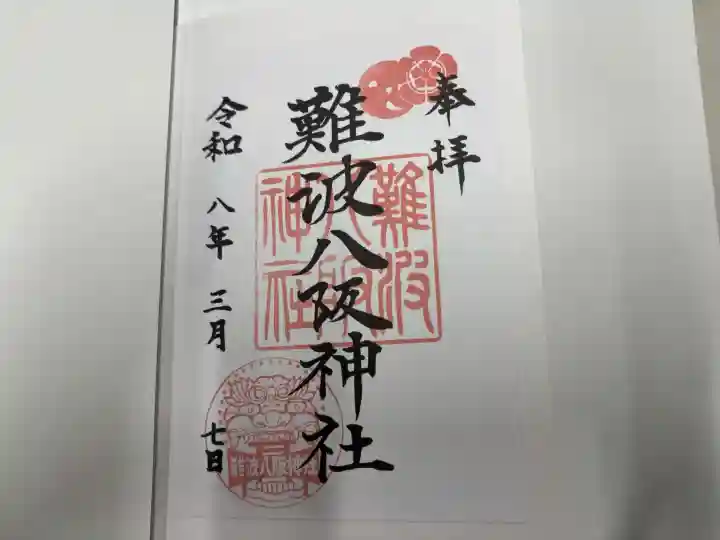 奉拝
難波八阪神社
難波
八阪
神社
令和八年三月七日
難波八阪神社